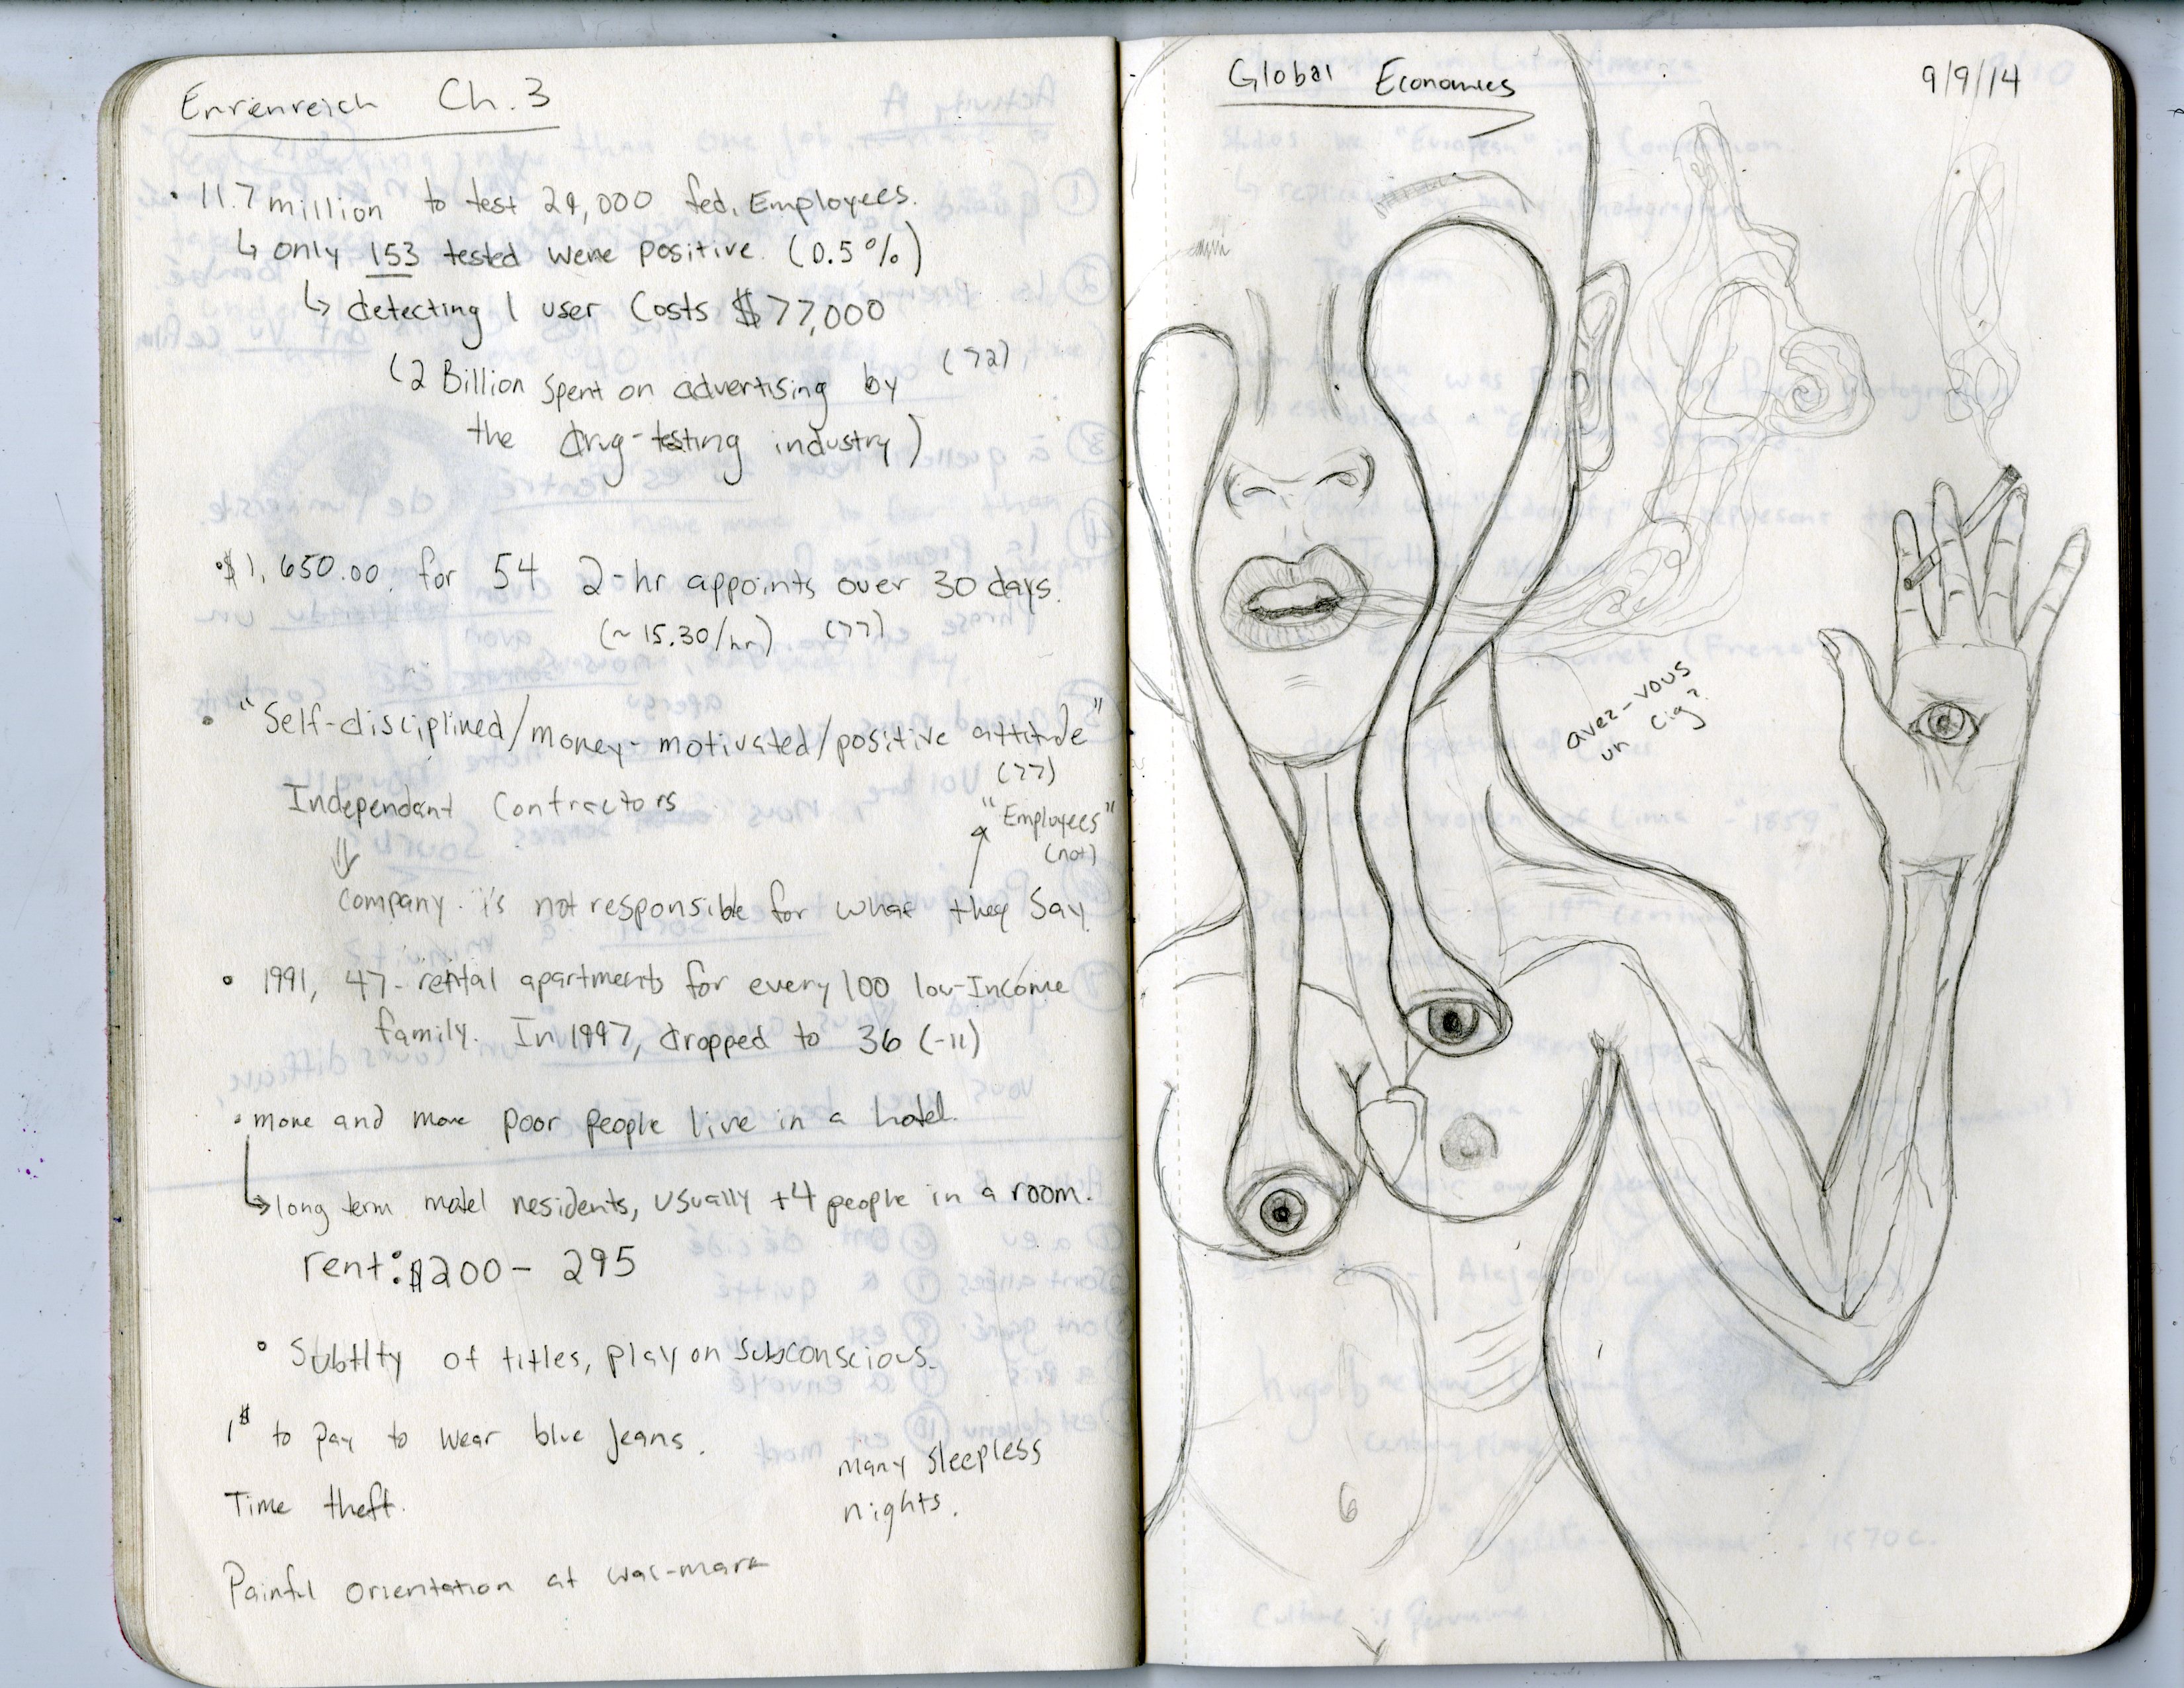 Enrenreich Ch. 3
• 11.7 million to test 29,000 fed. Employees.
↳ only 153 tested were positive. (0.5%)
↳ detecting 1 user costs $77,000
(72)
(2 Billion spent on advertising by
the drug-testing industry)
• $1,650.00 for 54 2-hr appoints over 30 days.
(~15.30/hr) (77)
• "Self-disciplined/money-motivated/positive attitude"
(77)
Independant Contractors
"Employees"
(not)
⇓
company is not responsible for what they say
• 1991, 47-rental apartments for every 100 low-Income
family. In 1997, dropped to 36 (-11)
• more and more poor people live in a hotel.
↳ long term motel residents, usually +4 people in a room.
rent: $200 - 295
• Subtlty of titles, play on subconscious.
1$ to pay to wear blue jeans.
many sleepless
nights.
Time theft.
Painful orientation at wal-mart
Global Economies 9/9/14
avez-vous
un cig?